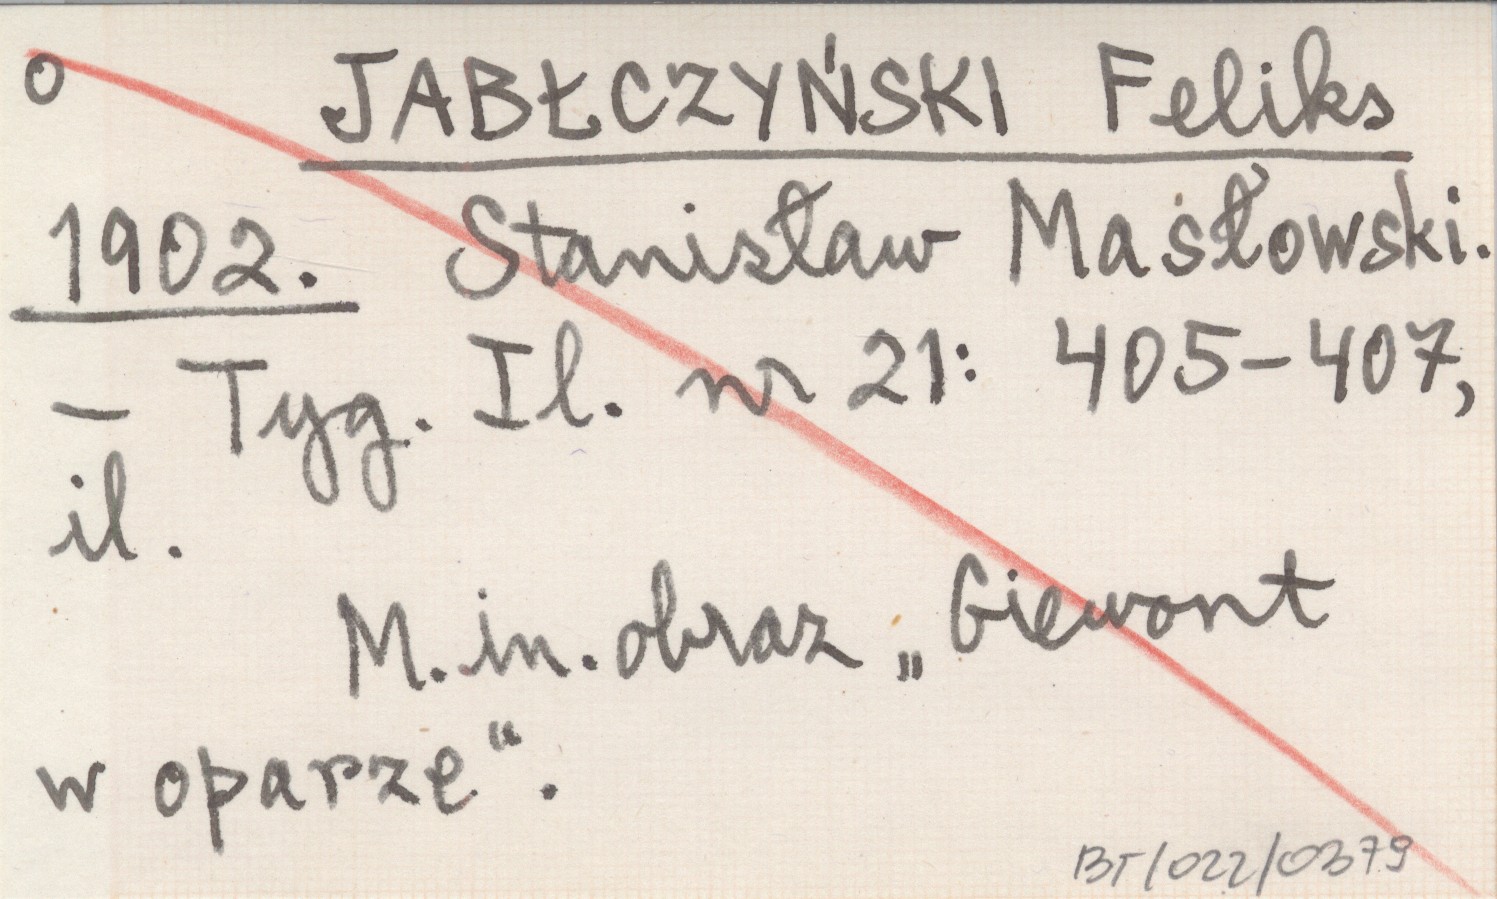 o JABŁCZYŃSKI Feliks
1902. Stanisław Masłowski.
– Tyg. Il. nr 21: 405–407,
il.
M.in. obraz „Giewont
w oparze“.
BT/022/0379